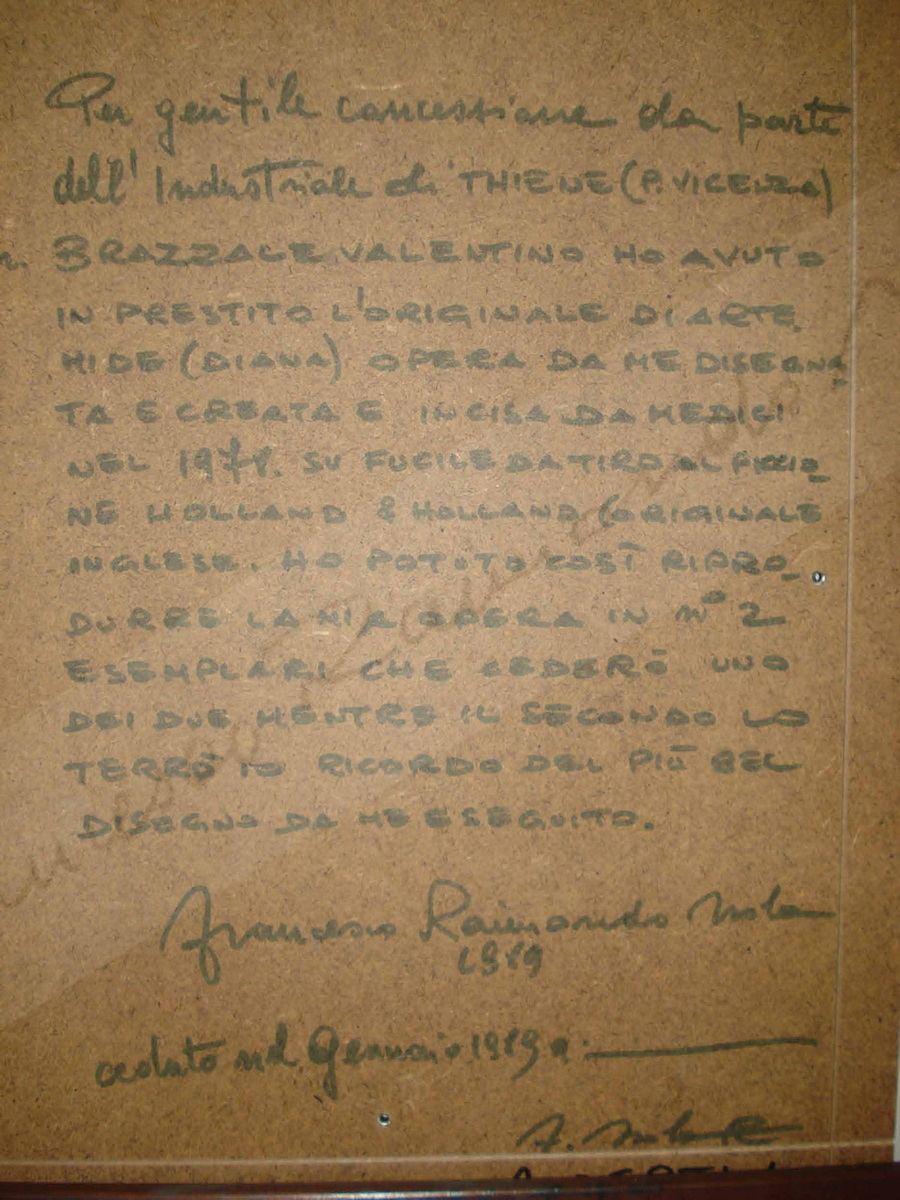 Per gentile concessione da parte
dell' Industriale di THIENE (P. VICENZA)
BRAZZALE VALENTINO HO AVUTO
IN PRESTITO L'ORIGINALE DI ARTE
MIDE (DIANA) OPERA DA ME DISEGNA-
TA E CREATA E INCISA DA MEDICI
NEL SU FUCILE DA TIRO AL PICCIO_
NE HOLLAND & HOLLAND (ORIGINALE
INGLESE. HO POTUTO COSÌ RIPRO_
DURRE LA MIA OPERA IN Nº 2
ESEMPLARI CHE CEDERÒ UNO
DEI DUE MENTRE IL SECONDO LO
TERRÒ IO RICORDO DEL PIÙ BEL
DISEGNO DA ME ESEGUITO.
Francesco Raimondo
1989
ceduto nel Gennaio 1989 a